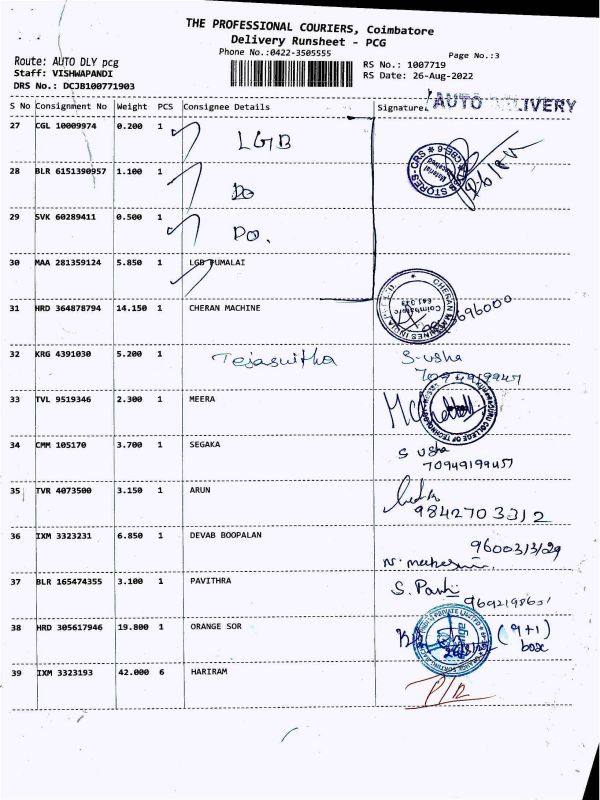 THE PROFESSIONAL COURIERS, Coimbatore
Delivery Runsheet - PCG
Phone No.:0422-3505555
Page No.:3
Route: AUTO DLY pcg
RS No.: 1007719
Staff: VISHWAPANDI
RS Date: 26-Aug-2022
DRS No.: DCJB100771903
S No Consignment No Weight PCS Consignee Details Signature
AUTO DELIVERY
27 CGL 10009974 0.200 1 LGB
28 BLR 6151390957 1.100 1 DO
29 SVK 60289411 0.500 1 DO.
30 MAA 281359124 5.850 1 LGB PUMALAI
31 HRD 364878794 14.150 1 CHERAN MACHINE
32 KRG 4391030 5.200 1 Tejaswitha S-usha
7094919945
33 TVL 9519346 2.300 1 MEERA
34 CMM 105170 3.700 1 SEGAKA S usha
35 TVR 4073500 3.150 1 ARUN
9842703312
36 IXM 3323231 6.850 1 DEVAB BOOPALAN
9600313129
37 BLR 165474355 3.100 1 PAVITHRA
38 HRD 305617946 19.800 1 ORANGE SOR (9+1)
box
39 IXM 3323193 42.000 6 HARIRAM